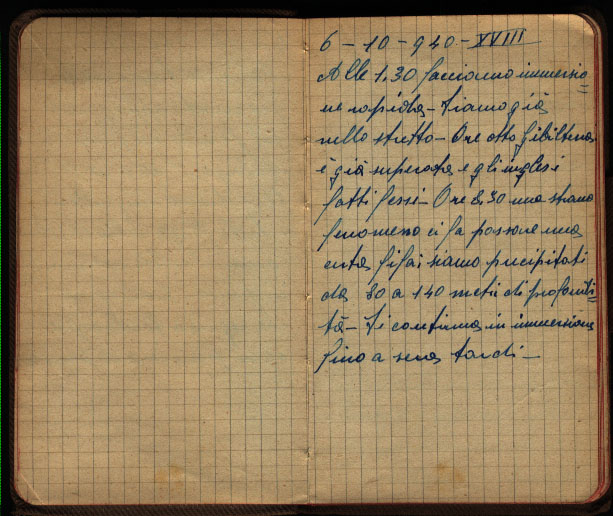 6 - 10 - 940 - XVIII
Alle 1.30 facciamo immersio=
ne rapida - Siamo già
nello stretto - Ore otto Gibilterra
è già superata e gli inglesi
fatti fessi - Ore 8.30 uno strano
fenomeno ci fa passare una
certa fifa; siamo precipitati
da 80 a 140 metri di profondi=
tà - Si continua in immersione
fino a sera tardi -